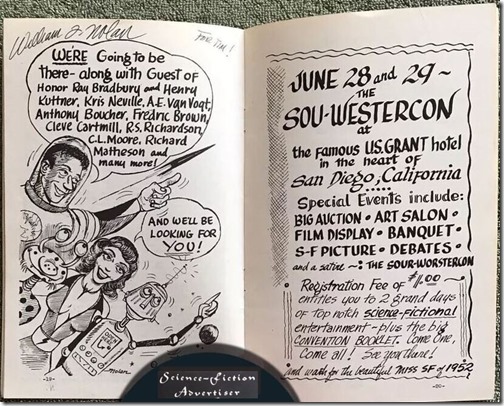 William F. Nolan
For Tim!
WE'RE Going to be
there - along with Guest of
Honor Ray Bradbury and Henry
Kuttner, Kris Neville, A.E. Van Vogt,
Anthony Boucher, Fredric Brown,
Cleve Cartmill, R.S. Richardson,
C.L. Moore, Richard
Matheson and
many more!
AND WE'LL BE
LOOKING FOR
YOU!
OPEN HERE
nolan
-29-
JUNE 28 and 29 ~
THE
SOU-WESTERCON
at
the FAMOUS U.S. GRANT hotel
in the heart of
San Diego, California
Special Events include:
BIG AUCTION • ART SALON •
FILM DISPLAY • BANQUET •
S-F PICTURE • DEBATES •
and a satire ~: THE SOUR-WORSTERLON
Registration Fee of $1.00
entitles you to 2 grand days
of top notch science-fictional
entertainment - plus the big
CONVENTION BOOKLET. Come One,
Come all! See you there!
and watch for the beautiful MISS SF of 1952
Science-Fiction
Advertiser